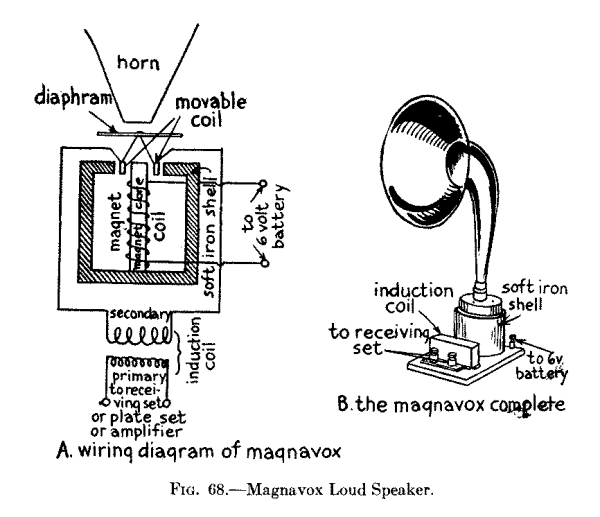 horn
diaphram
movable
coil
magnet
magnet core
coil
soft iron shell
to
6 volt
battery
secondary
induction
coil
primary
to recei-
ving set
or plate set
or amplifier
A. wiring diagram of magnavox
induction
coil
soft iron
shell
to receiving
set
to 6v.
battery
B. the magnavox complete
FIG. 68.—Magnavox Loud Speaker.